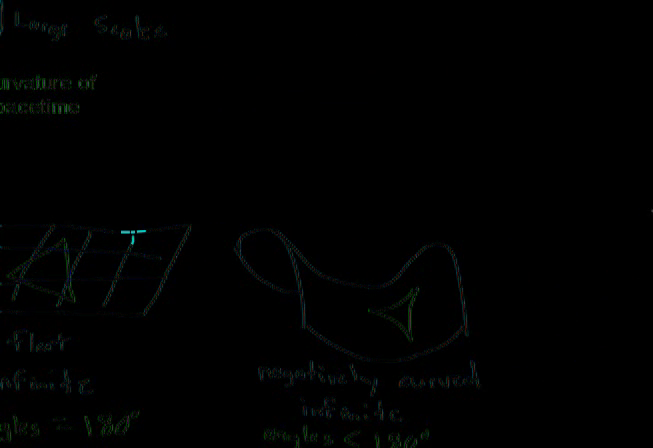 Large Scales
urvature of
pacetime
flat
nfinite
gles = 180°
negatively curved
infinite
angles < 180°